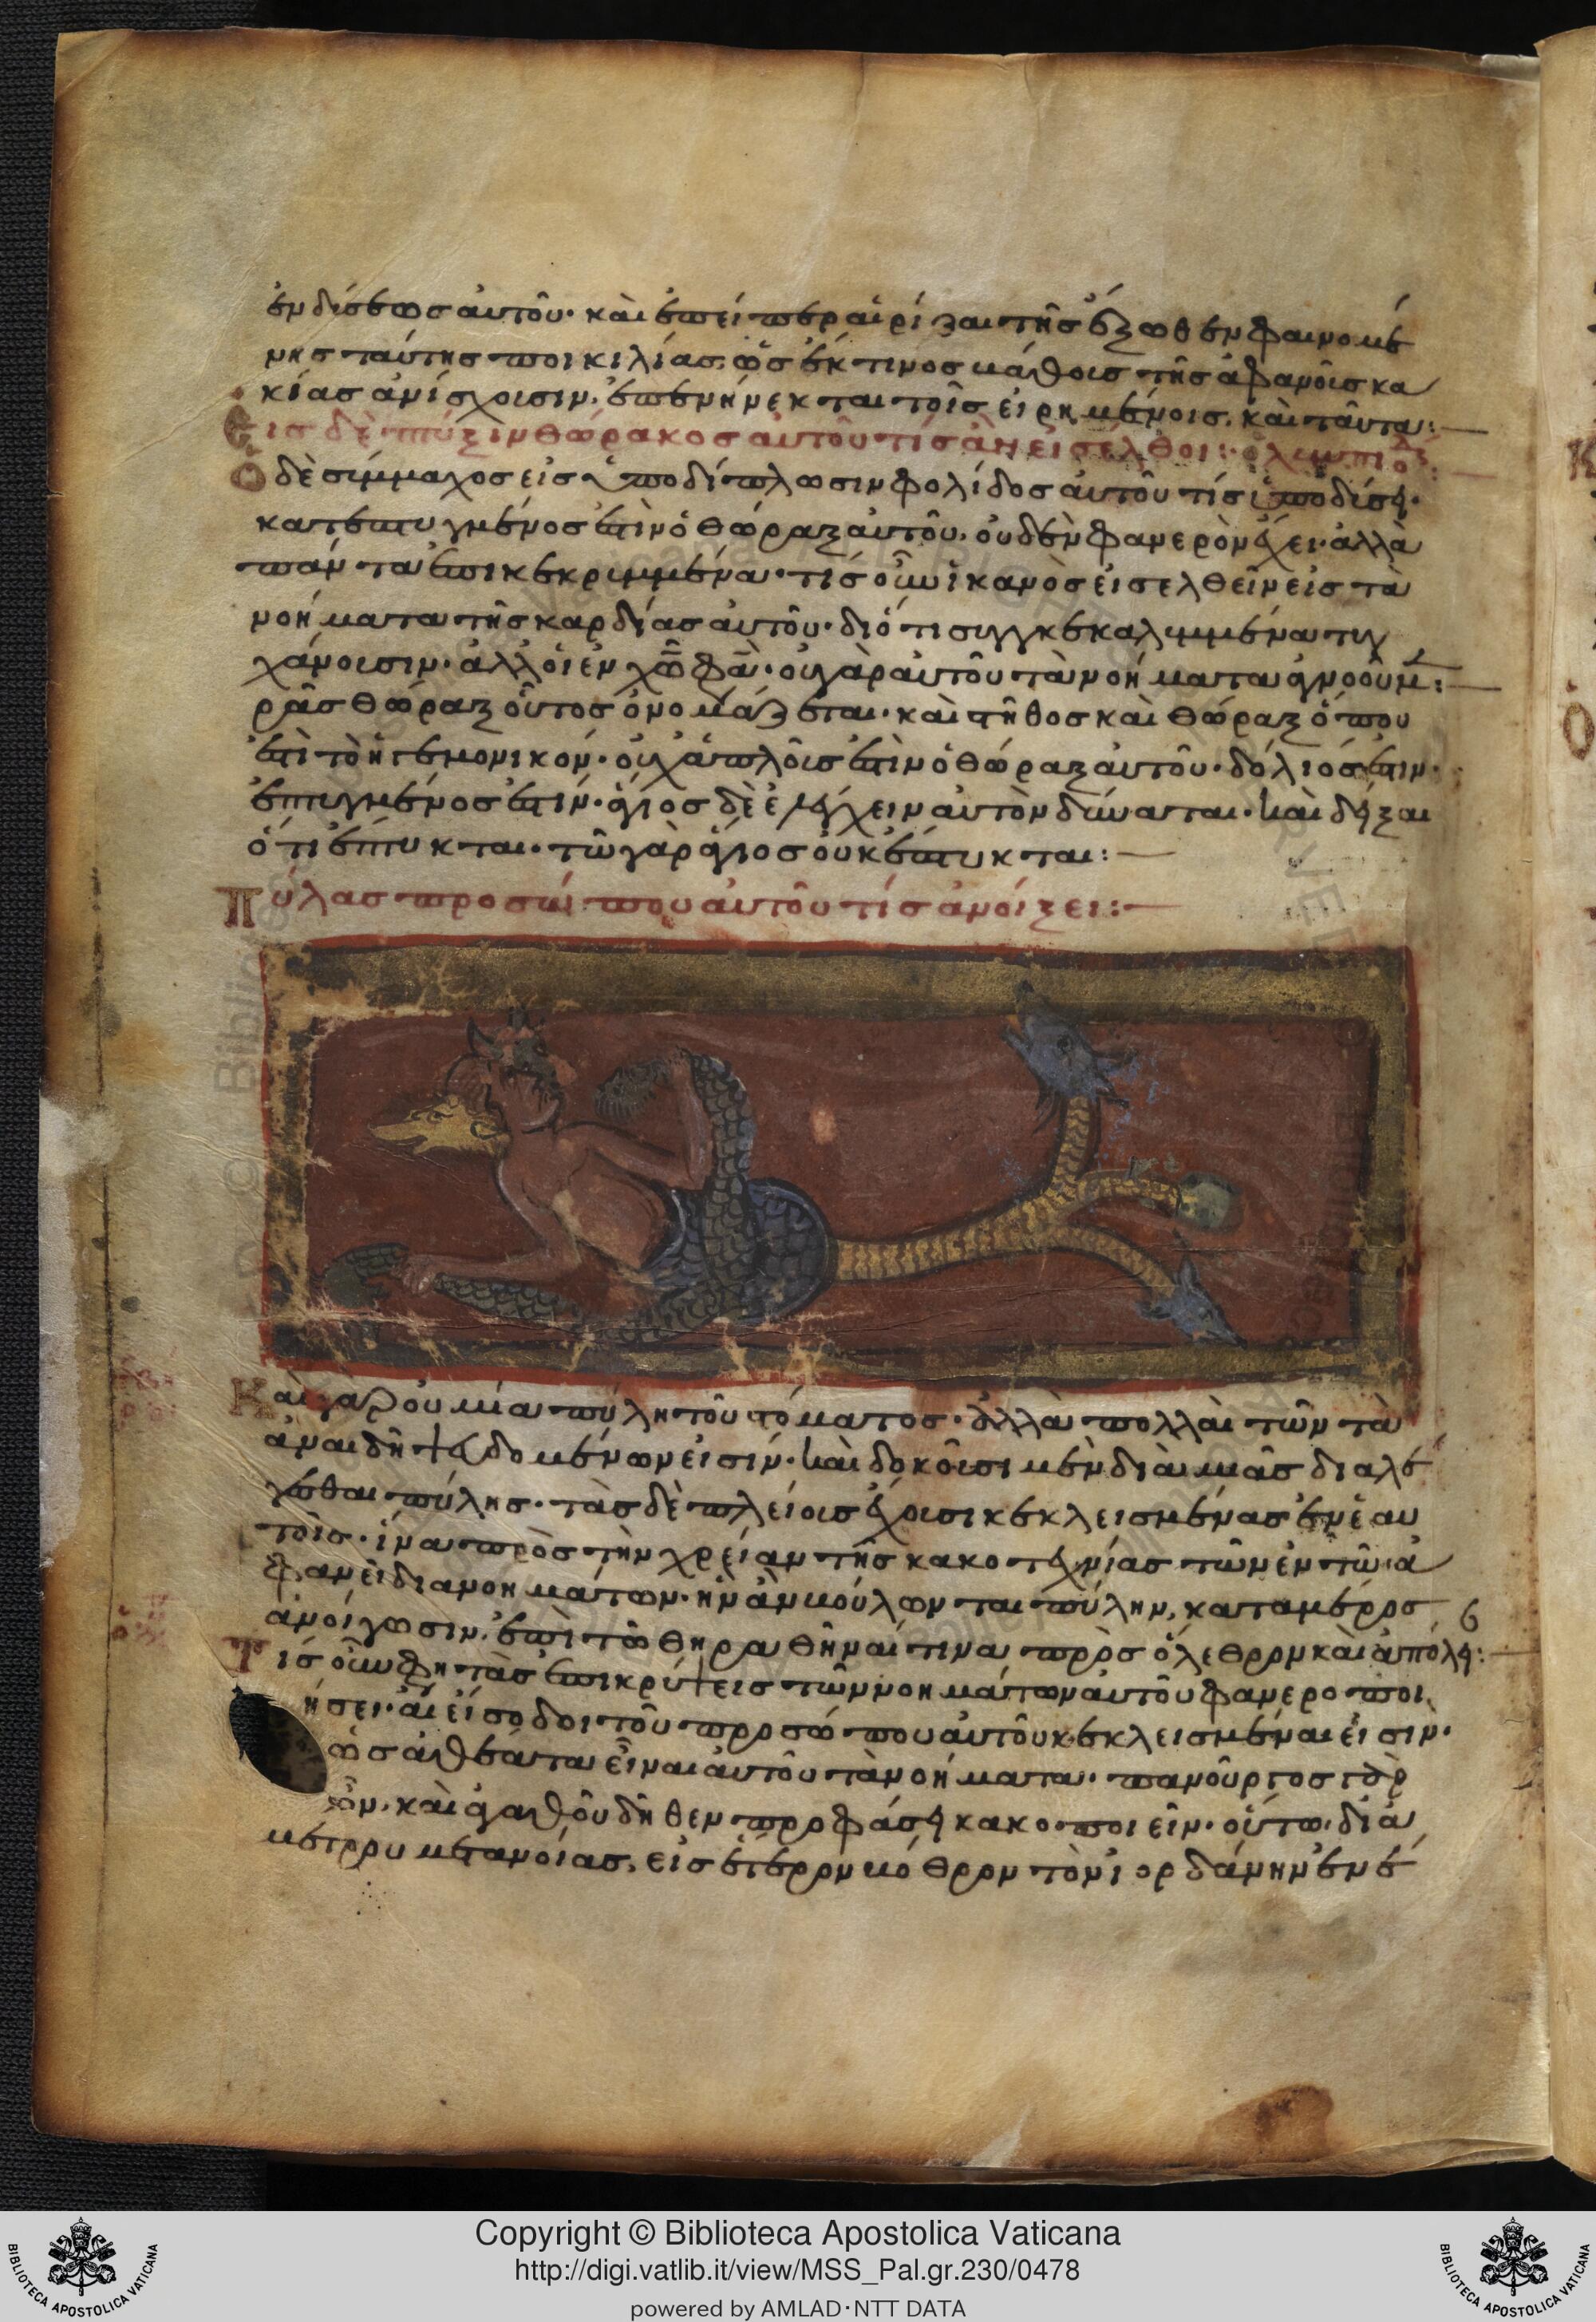 ἐνδύσεως αὐτοῦ· καὶ ἐπεί περ αἱ ῥίζαι τῆς ἔξωθεν φαινομέ
νης ταύτης ποικιλίας, ὡς ἔκ τινος βάθους τῆς ἀφανοῦς κα
κίας ἀνίσχουσιν, ἐπενήνεκται τοῖς εἰρημένοις, καὶ ταῦτα:
Εἰς δὲ πτύξιν θώρακος αὐτοῦ τίς ἂν εἰσέλθοι:
Ὁ δὲ σύμμαχος εἰς ὑποδίπλωσιν φολίδος αὐτοῦ τίς
κατεπτυγμένος ἐστὶν ὁ θώραξ αὐτοῦ, οὐδὲν φανερὸν ἔχει· ἀλλὰ
πάντα ἐπικεκρυμμένα· τίς οὖν ἱκανὸς εἰσελθεῖν εἰς τὰ
νοήματα τῆς καρδίας αὐτοῦ· διότι συγκεκαλυμμένα τυγ
χάνουσιν· ἀλλ' οἱ ἐν χω φα· οὐ γὰρ αὐτοῦ τὰ νοήματα ἀγνοοῦμ:
θώραξ οὗτος ὀνομάζεται· καὶ στῆθος καὶ θώραξ ὅπου
ἐστὶ τὸ ἡγεμονικόν· οὐχ ἁπλοῦς ἐστὶν ὁ θώραξ αὐτοῦ· δόλιός ἐστιν·
ἐπτυγμένος ἐστίν· ἅγιος δὲ ἐλέγχειν αὐτὸν δύναται· καὶ δεῖξαι
ὅτι ἔπτυκται· τῶ γὰρ ἅγιος οὐκ ἔπτυκται:
Πύλας προσώπου αὐτοῦ τίς ἀνοίξει:
Καὶ γὰρ οὐ μία πύλη τοῦ στόματος· ἀλλὰ πολλαὶ τῶν τὰ
ἀναιδῆ ψευδομένων εἰσίν· καὶ δοκοῦσι μὲν διὰ μιᾶς διαλέ
γεσθαι πύλης· τὰς δὲ πλείους ἔχουσι κεκλεισμένας ἐν ἑαυ
τοῖς· ἵνα πρὸς τὴν χρείαν τῆς κακοτεχνίας τῶν ἐν τῶ ἀ
φανεῖ διανοημάτων· ἣν ἂν βούλωνται πύλην, κατὰ μέρος
ἀνοίγωσιν, ἐπὶ τῶ θηραθῆναί τινα πρὸς ὄλεθρον καὶ ἀπόλει:
Τίς οὖν φη τὰς ἐπικρύψεις τῶν νοημάτων αὐτοῦ φανεροποι
ήσει· αἱ εἴσοδοι τοῦ προσώπου αὐτοῦ κεκλεισμέναι εἰσίν·
ὡς ἀθέατα εἶναι αὐτοῦ τὰ νοήματα· πανοῦργος γὰρ
ὤν, καὶ ἀγαθοῦ δῆθεν προφάσει κακοποιεῖν· οὕτω, διὰ
μετανοίας, εἰς ἕτερον βόθρον τὸν ἰορδάνην ἐνέ
Copyright © Biblioteca Apostolica Vaticana
http://digi.vatlib.it/view/MSS_Pal.gr.230/0478
powered by AMLAD·NTT DATA
BIBLIOTECA APOSTOLICA VATICANA
BIBLIOTECA APOSTOLICA VATICANA